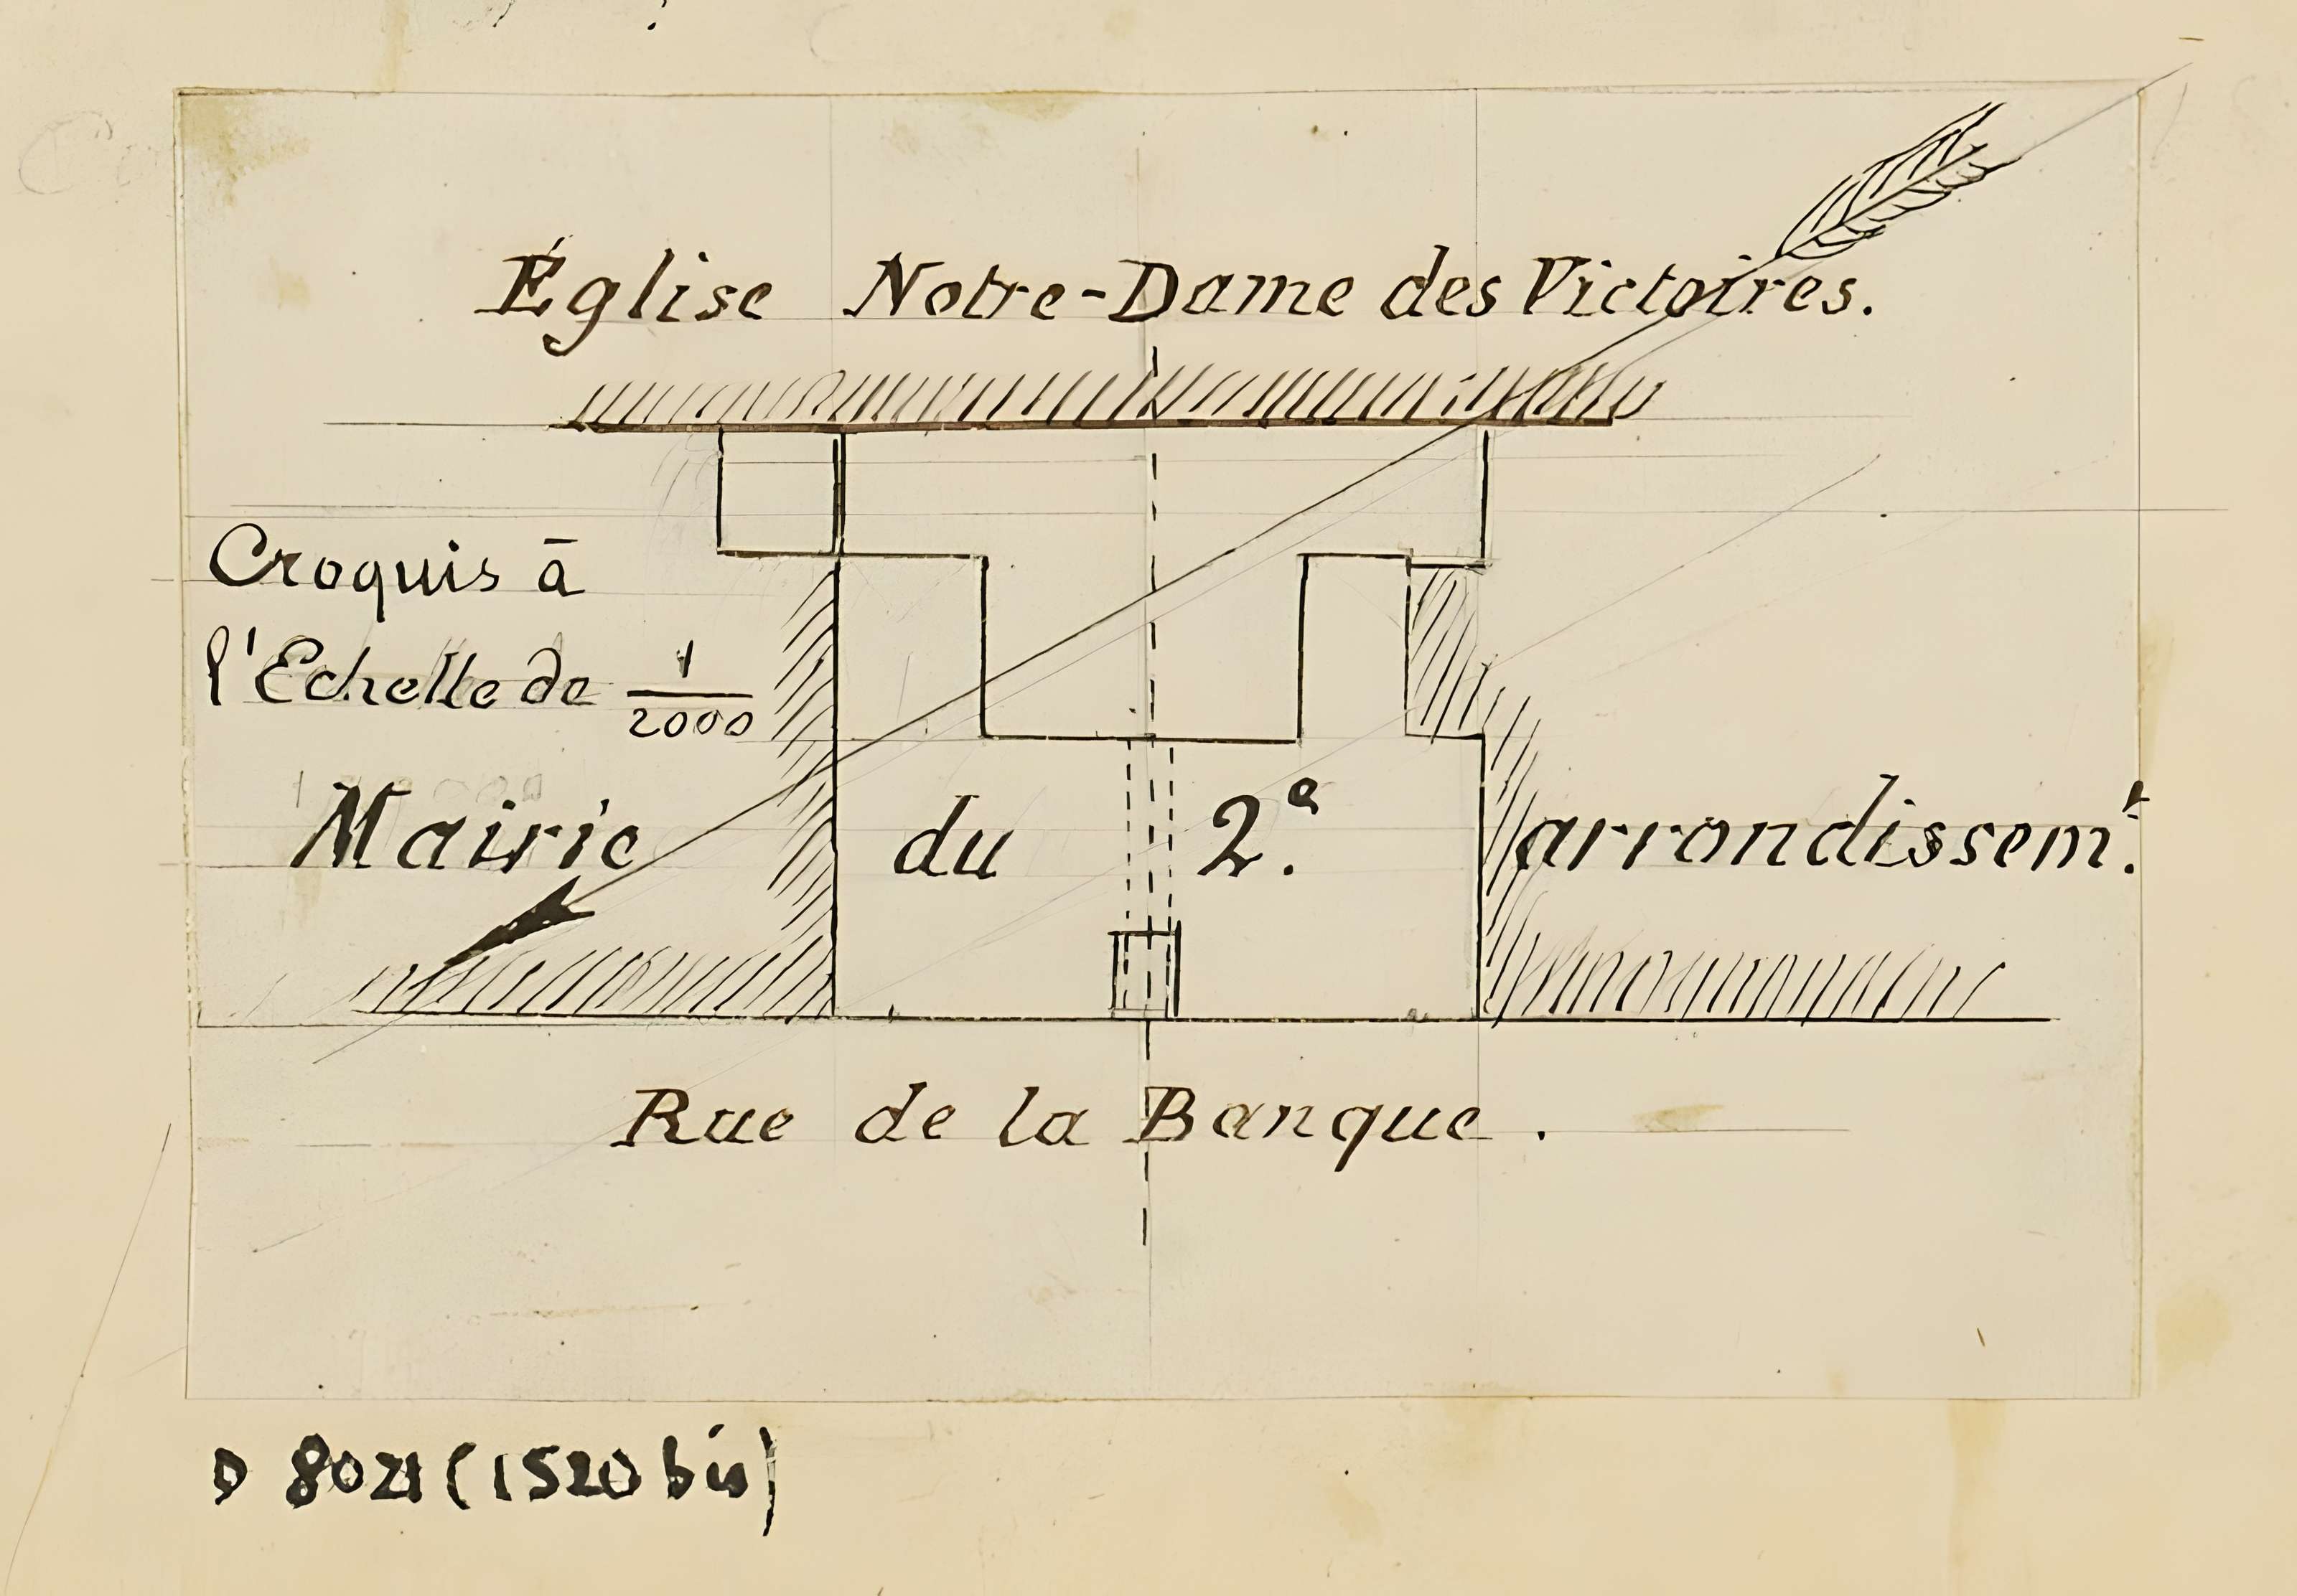 Église Notre-Dame des Victoires.
Croquis à
l'Echelle de 1/2000
Mairie du 2.e arrondissem.t
Rue de la Banque.
D 8021 (1520 bis)